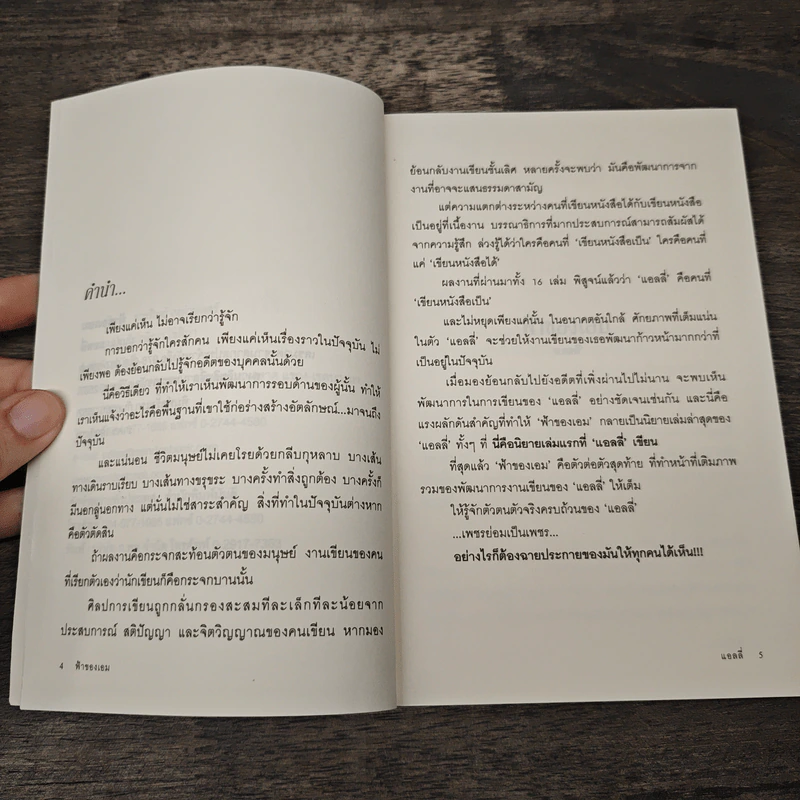 คำนำ...
เพียงแค่เห็น ไม่อาจเรียกว่ารู้จัก
การบอกว่ารู้จักใครสักคน เพียงแค่เห็นเรื่องราวในปัจจุบัน ไม่
เพียงพอ ต้องย้อนกลับไปรู้จักอดีตของบุคคลนั้นด้วย
นี่คือวิธีเดียว ที่ทำให้เราเห็นพัฒนาการรอบด้านของผู้นั้น ทำให้
เราเห็นแจ้งว่าอะไรคือพื้นฐานที่เขาใช้ก่อร่างสร้างอัตลักษณ์...มาจนถึง
ปัจจุบัน
และแน่นอน ชีวิตมนุษย์ไม่เคยโรยด้วยกลีบกุหลาบ บางเส้น
ทางเดินราบเรียบ บางเส้นทางขรุขระ บางครั้งทำสิ่งถูกต้อง บางครั้งก็
มีนอกลู่นอกทาง แต่นั่นไม่ใช่สาระสำคัญ สิ่งที่ทำในปัจจุบันต่างหาก
คือตัวตัดสิน
ถ้าผลงานคือกระจกสะท้อนตัวตนของมนุษย์ งานเขียนของคน
ที่เรียกตัวเองว่านักเขียนก็คือกระจกบานนั้น
ศิลปการเขียนถูกกลั่นกรองสะสมทีละเล็กทีละน้อยจาก
ประสบการณ์ สติปัญญา และจิตวิญญาณของคนเขียน หากมอง
4 ฟ้าของเอม
ย้อนกลับงานเขียนชั้นเลิศ หลายครั้งจะพบว่า มันคือพัฒนาการจาก
งานที่อาจจะแสนธรรมดาสามัญ
แต่ความแตกต่างระหว่างคนที่เขียนหนังสือได้กับเขียนหนังสือ
เป็นอยู่ที่เนื้องาน บรรณาธิการที่มากประสบการณ์สามารถสัมผัสได้
จากความรู้สึก ล่วงรู้ได้ว่าใครคือคนที่ 'เขียนหนังสือเป็น' ใครคือคนที่
แค่ 'เขียนหนังสือได้'
ผลงานที่ผ่านมาทั้ง 16 เล่ม พิสูจน์แล้วว่า 'แอลลี่' คือคนที่
'เขียนหนังสือเป็น'
และไม่หยุดเพียงแค่นั้น ในอนาคตอันใกล้ ศักยภาพที่เต็มแน่น
ในตัว 'แอลลี่' จะช่วยให้งานเขียนของเธอพัฒนาก้าวหน้ามากกว่าที่
เป็นอยู่ในปัจจุบัน
เมื่อมองย้อนกลับไปยังอดีตที่เพิ่งผ่านไปไม่นาน จะพบเห็น
พัฒนาการในการเขียนของ 'แอลลี่' อย่างชัดเจนเช่นกัน และนี่คือ
แรงผลักดันสำคัญที่ทำให้ 'ฟ้าของเอม' กลายเป็นนิยายเล่มล่าสุดของ
'แอลลี่' ทั้งๆ ที่ นี่คือนิยายเล่มแรกที่ 'แอลลี่' เขียน
ที่สุดแล้ว 'ฟ้าของเอม' คือตัวต่อตัวสุดท้าย ที่ทำหน้าที่เติมภาพ
รวมของพัฒนาการงานเขียนของ 'แอลลี่' ให้เต็ม
ให้รู้จักตัวตนตัวจริงครบถ้วนของ 'แอลลี่'
...เพชรย่อมเป็นเพชร...
อย่างไรก็ต้องฉายประกายของมันให้ทุกคนได้เห็น!!!
แอลลี่ 5